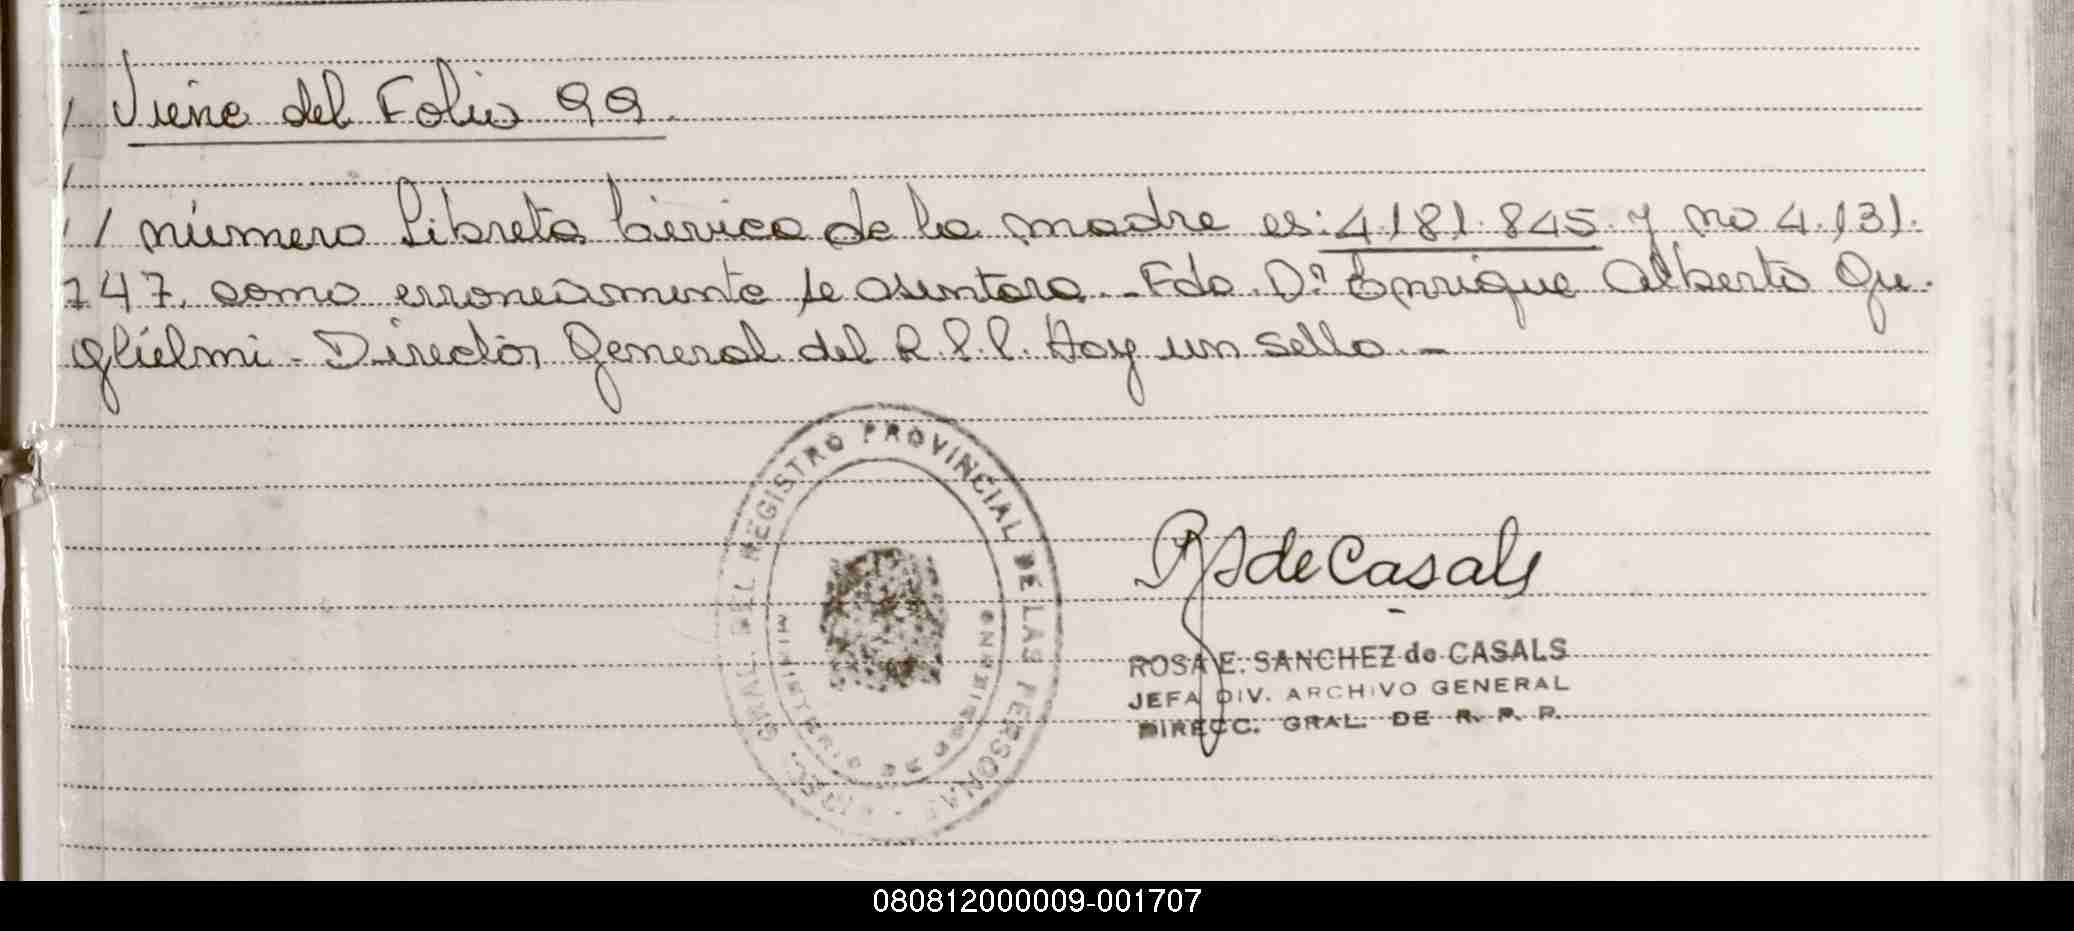 Viene del Folio 99.
// número Libreta Cívica de la madre es: 4.181.845. y no 4.131.
747. como erroneamente se asentara.- Fdo. Dr. Enrique Alberto Gu-
glielmi - Director General del R.P.P. Hay un sello.-
DIREC. GRAL. DEL REGISTRO PROVINCIAL DE LAS PERSONAS
MINISTERIO DE GOBIERNO
R S de Casals
ROSA E. SANCHEZ de CASALS
JEFA DIV. ARCHIVO GENERAL
DIRECC. GRAL. DE R. P. P.
080812000009-001707